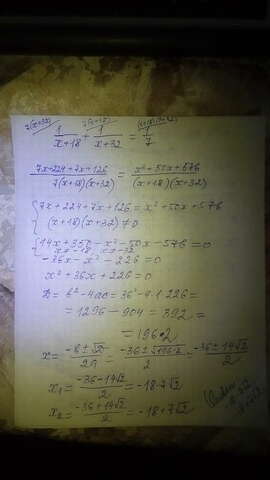 7(x+32) 7(x+18) (x+18)(x+32)
1/(x+18) + 1/(x+32) = 1/7
(7x+224+7x+126)/(7(x+18)(x+32)) = (x²+50x+576)/((x+18)(x+32))
{ 7x+224+7x+126=x²+50x+576
(x+18)(x+32)≠0
{ 14x+350-x²-50x-576=0
x≠-18 x≠-32
-36x-x²-226=0
x²+36x+226=0
D=b²-4ac=36²-4·1·226=
=1296-904=392=
=196·2
x=(-b±√D)/2a=(-36±√196·2)/2=(-36±14√2)/2
x₁=(-36-14√2)/2=-18-7√2
x₂=(-36+14√2)/2=-18+7√2